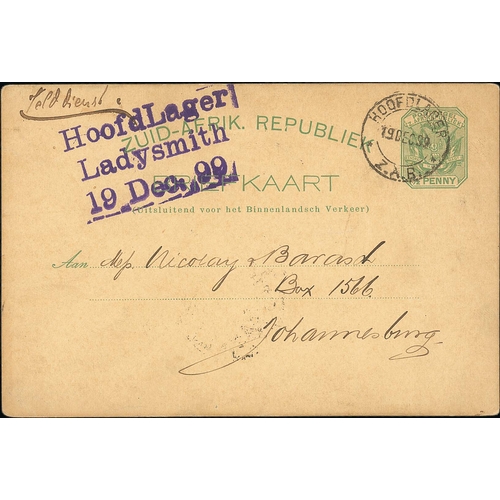 Velddienst
HoofdLager
Ladysmith
19 Dec. 99
HOOFDLAGER
19 DEC 99
Z.A.R.
ZUID-AFRIK. REPUBLIEK
BRIEFKAART
(Uitsluitend voor het Binnenlandsch Verkeer)
½ PENNY
Aan Mrs. Nicolay & Barast
Box 1566.
Johannesburg.